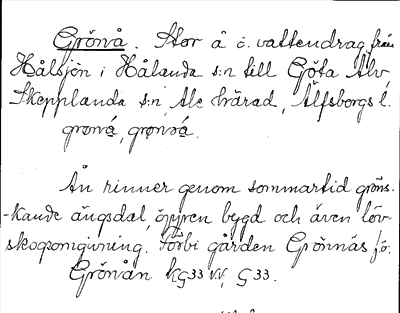 Grönå. Stor å o. vattendrag från
Hålsjön i Hålanda s:n till Göta Älv,
Skepplanda s:n, Ale härad, Älfsborgs l.
Ån rinner genom sommartid gröns-
-kande ängsdal, öppen bygd och även löv-
skogsomgivning. Förbi gården Grönnäs jö.
Grönån kG33 VV, G33.